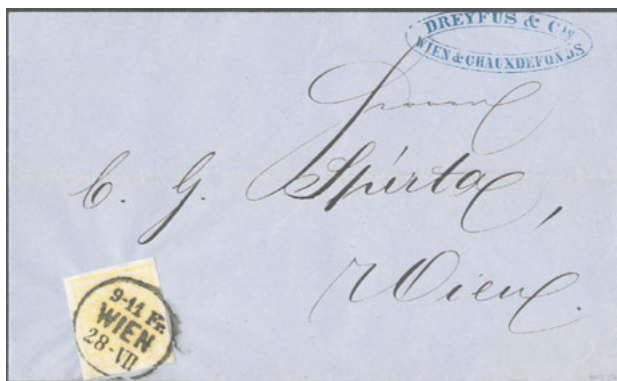 DREYFUS & Cie
WIEN & CHAUXDEFONDS
Herrn
C. G. Spirta,
Wien.
9-11 Fr.
WIEN
28-VII